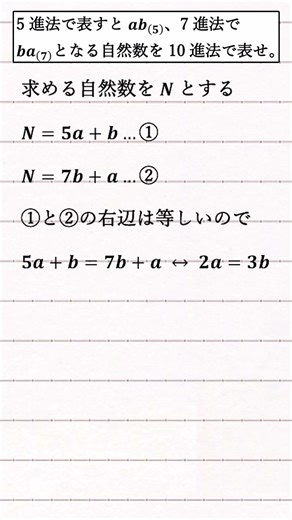 5 進法で表すと ab₍₅₎、7 進法で
ba₍₇₎となる自然数を 10 進法で表せ。
求める自然数を N とする
N = 5a + b … ①
N = 7b + a … ②
①と②の右辺は等しいので
5a + b = 7b + a ↔ 2a = 3b